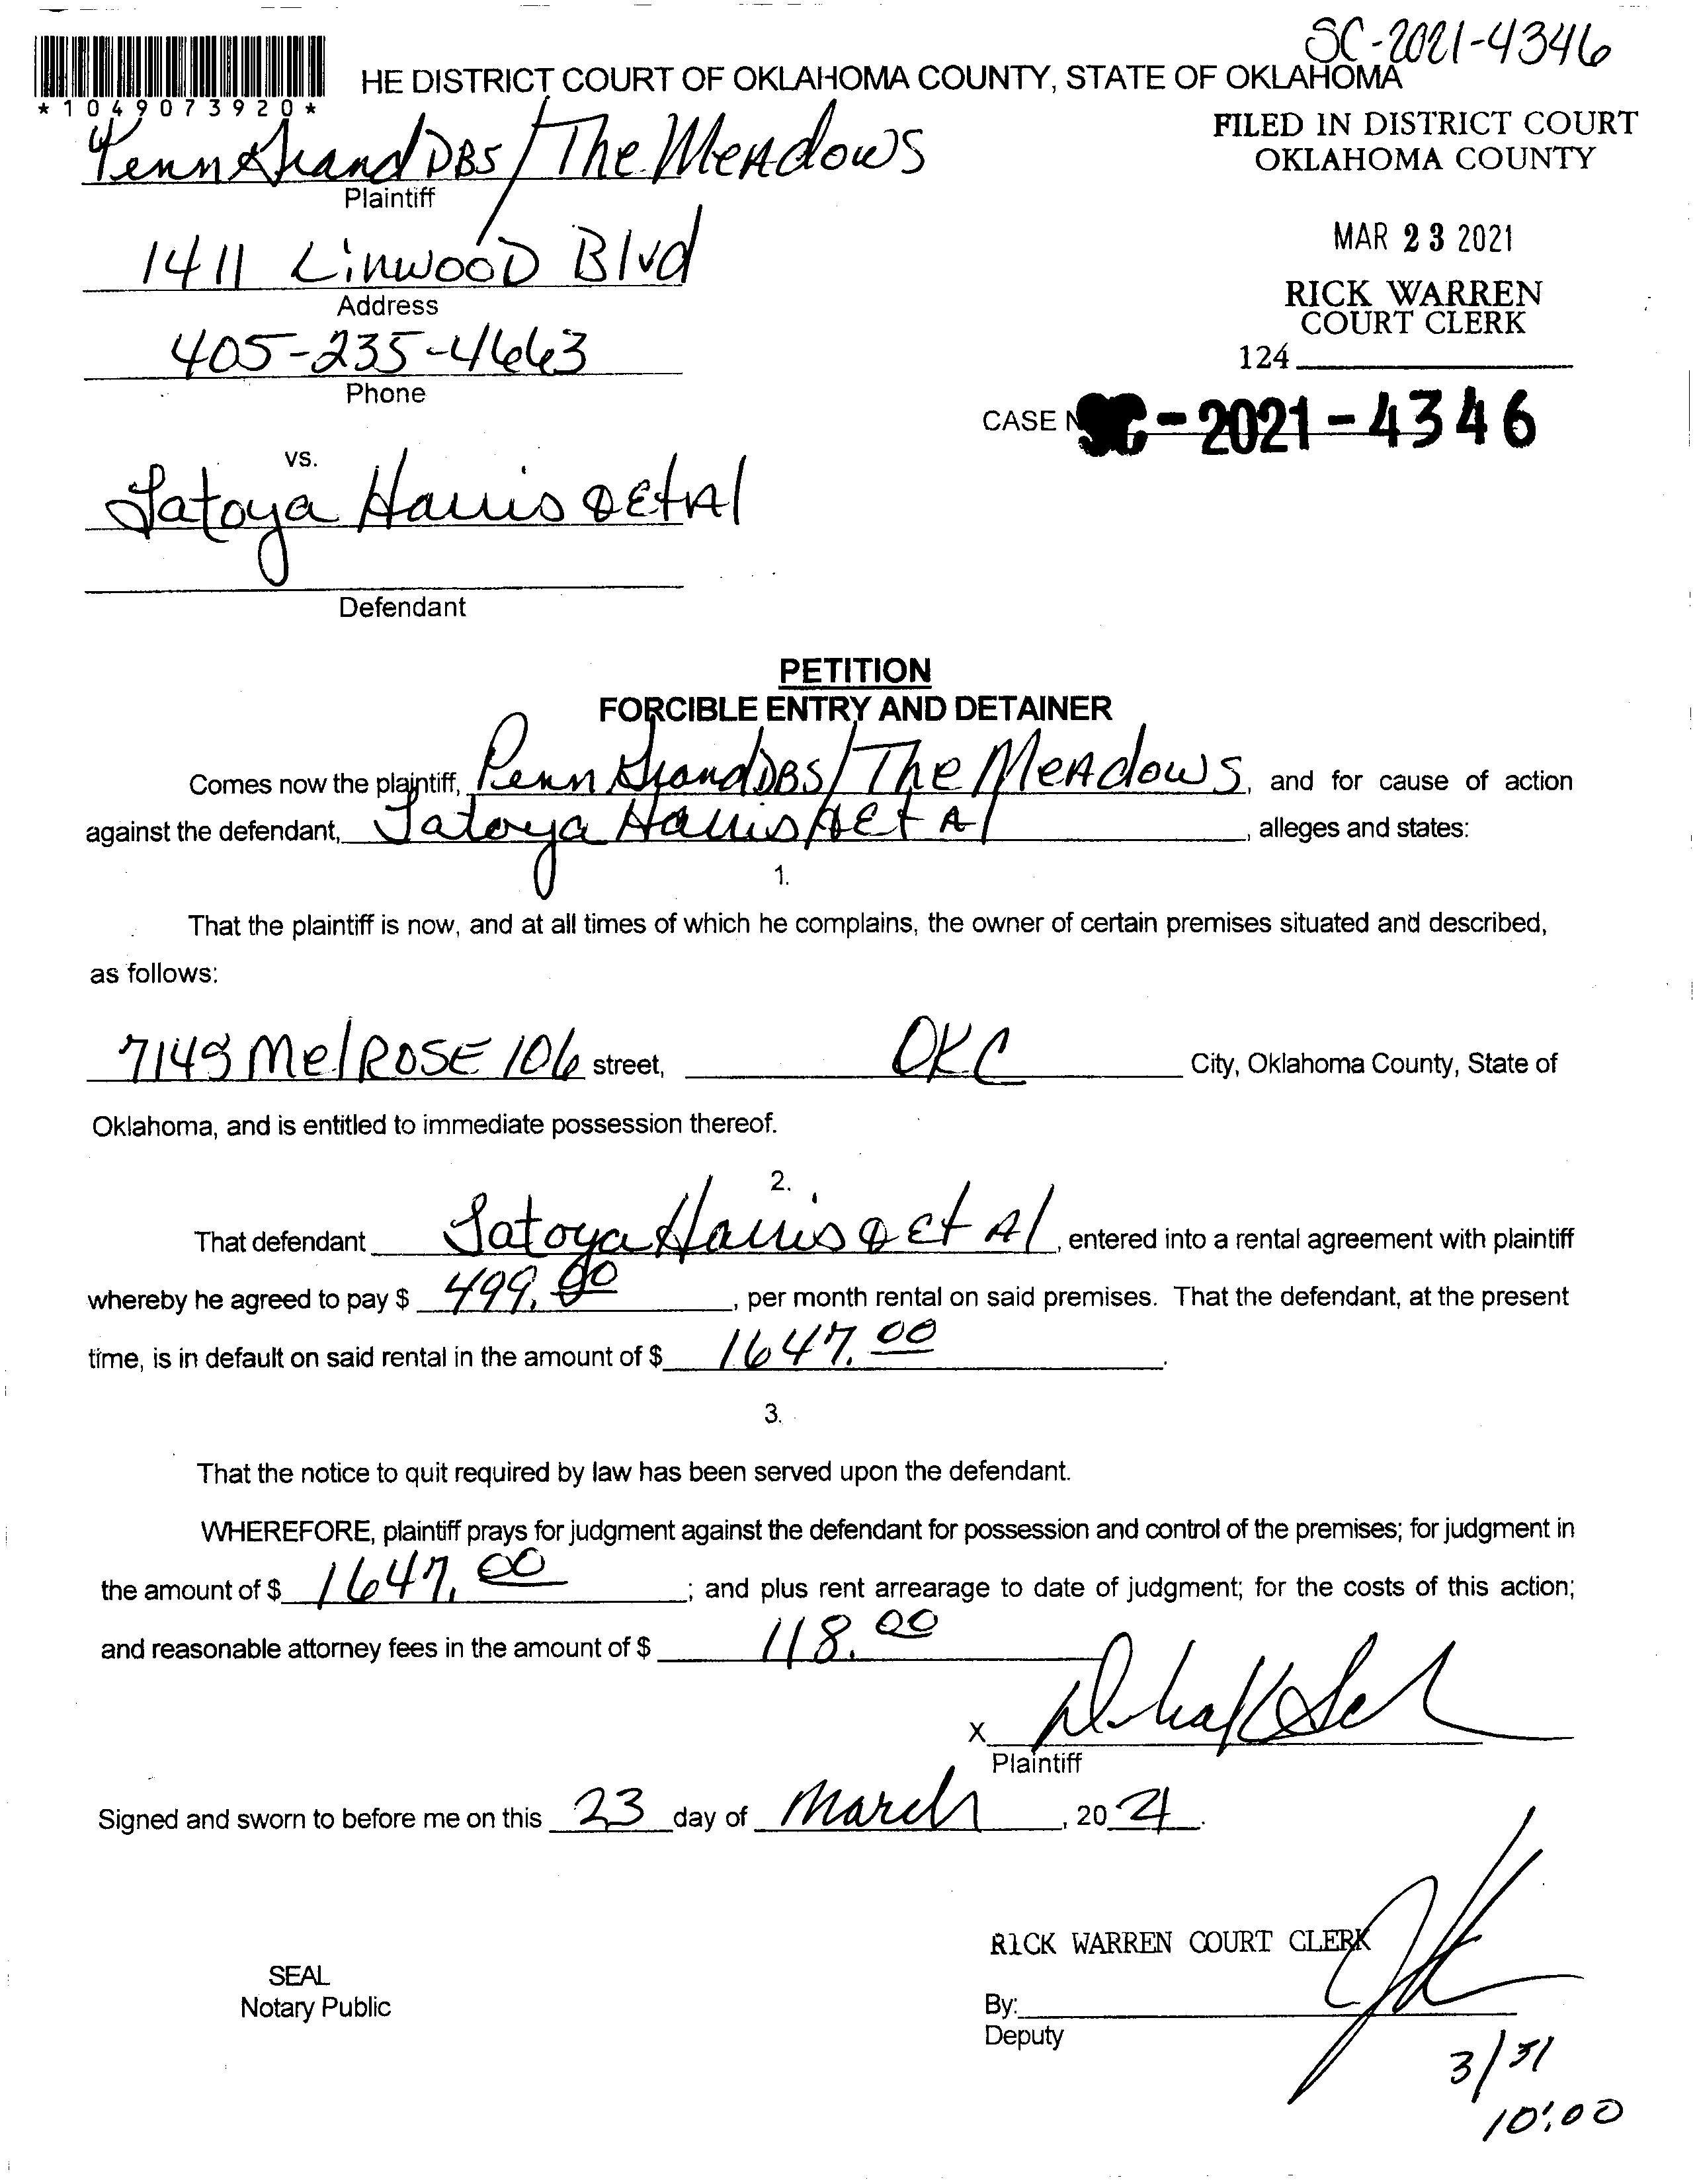 SC-2021-4346
HE DISTRICT COURT OF OKLAHOMA COUNTY, STATE OF OKLAHOMA
*1049073920*
FILED IN DISTRICT COURT
OKLAHOMA COUNTY
Penn Grand DBS/The Meadows
Plaintiff
MAR 23 2021
1411 Linwood Blvd
Address
RICK WARREN
COURT CLERK
405-235-4663
Phone
124
CASE N SC-2021-4346
vs.
Latoya Harris & Et Al
Defendant
PETITION
FORCIBLE ENTRY AND DETAINER
Comes now the plaintiff, Penn Grand DBS/The Meadows, and for cause of action
against the defendant, Latoya Harris Et Al, alleges and states:
1.
That the plaintiff is now, and at all times of which he complains, the owner of certain premises situated and described,
as follows:
Melrose 106 street, OKC City, Oklahoma County, State of
Oklahoma, and is entitled to immediate possession thereof.
2.
That defendant Latoya Harris & Et Al, entered into a rental agreement with plaintiff
whereby he agreed to pay $ 499.00, per month rental on said premises. That the defendant, at the present
time, is in default on said rental in the amount of $ 1647.00.
3.
That the notice to quit required by law has been served upon the defendant.
WHEREFORE, plaintiff prays for judgment against the defendant for possession and control of the premises; for judgment in
the amount of $ 1647.00; and plus rent arrearage to date of judgment; for the costs of this action;
and reasonable attorney fees in the amount of $ 118.00
X
Plaintiff
Signed and sworn to before me on this 23 day of March, 20 21.
RICK WARREN COURT CLERK
SEAL
Notary Public
By:
Deputy
3/31
10:00